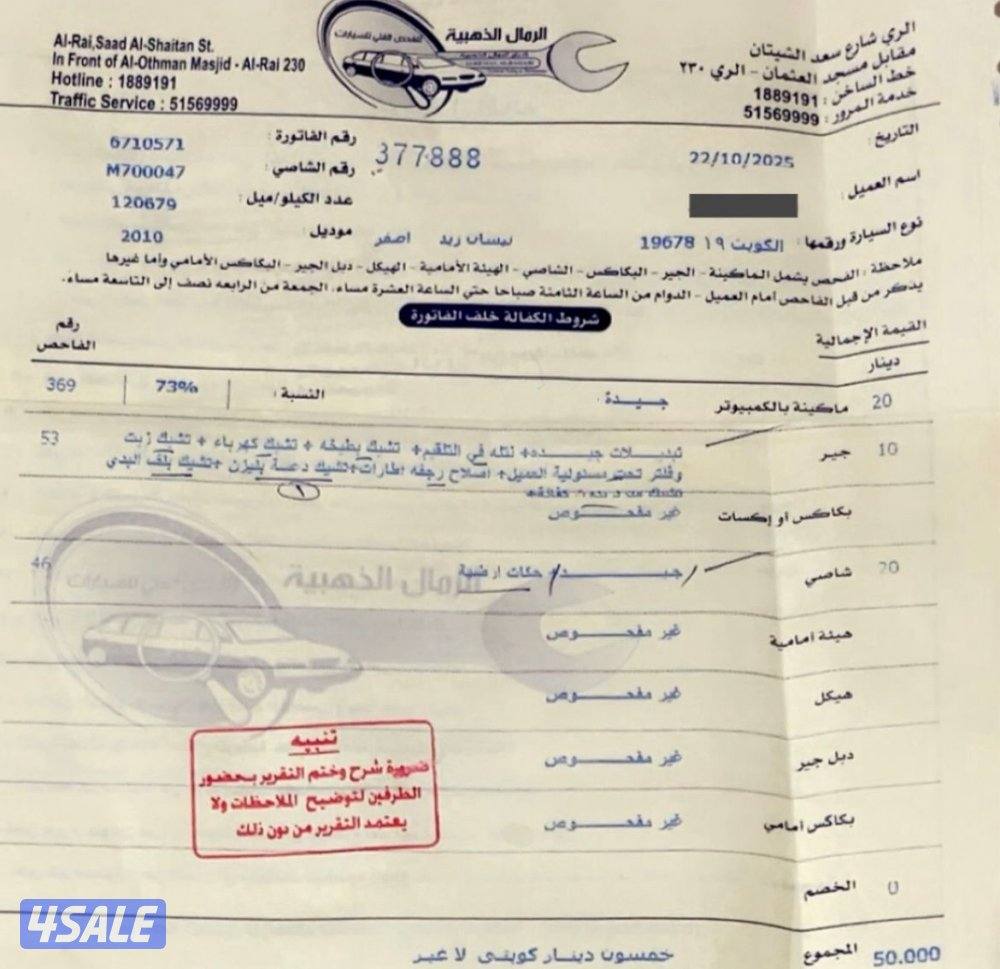 Al-Rai,Saad Al-Shaitan St.
In Front of Al-Othman Masjid - Al-Rai 230
Hotline : 1889191
Traffic Service : 51569999
الرمال الذهبية
للفحص الفني للسيارات
الري شارع سعد الشيتان
مقابل مسجد العثمان - الري ٢٣٠
خط الساخن : 1889191
خدمة المرور : 51569999
التاريخ : 22/10/2025
377888
رقم الفاتورة : 6710571
رقم الشاصي : M700047
اسم العميل :
عدد الكيلو/ميل : 120679
نوع السيارة ورقمها : الكويت ١٩ 19678 نيسان زيد اصفر
موديل : 2010
ملاحظة : الفحص يشمل الماكينة - الجير - البكاكس - الشاصي - الهيئة الأمامية - الهيكل - دبل الجير - البكاكس الأمامي وأما غيرها
يذكر من قبل الفاحص أمام العميل - الدوام من الساعة الثامنة صباحا حتي الساعة العشرة مساء، الجمعة من الرابعه نصف إلى التاسعة مساء.
شروط الكفالة خلف الفاتورة
القيمة الإجمالية
دينار
رقم الفاحص
20 ماكينة بالكمبيوتر جيدة : النسبة : 73% 369
10 جير تبديلات جيده+ نتله في التلقيم + تشيك بطيخه + تشيك كهرباء + تشيك زيت 53
وفلتر تحت مسئولية العميل+ اصلاح رجفه اطارات+تشيك دعسة بنيزن +تشيك بلف البدي
بكاكس أو إكسات غير مفحوص
20 شاصي جيد+ حكات ارضية 46
هيئة أمامية غير مفحوص
هيكل غير مفحوص
دبل جير غير مفحوص
بكاكس أمامي غير مفحوص
تنبيه
ضرورة شرح وختم التقرير بحضور
الطرفين لتوضيح الملاحظات ولا
يعتمد التقرير من دون ذلك
0 الخصم
50.000 المجموع خمسون دينار كويتي لا غير
4SALE